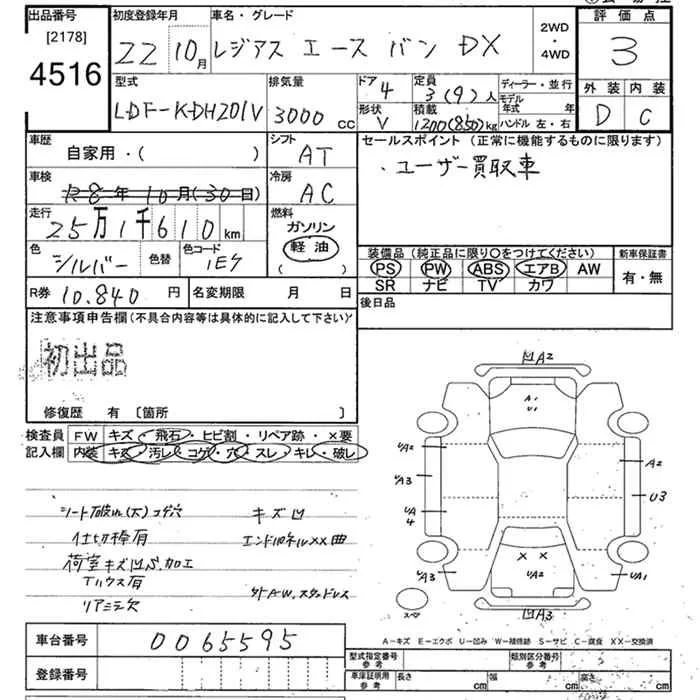 出品番号
[2178]
4516
初度登録年月
22 10月
車名・グレード
レジアス エース バン DX
2WD
・
4WD
評価点
3
外装 内装
D C
型式
LDF-KDH201V
排気量
3000 cc
ドア
4
定員
3(9)人
形状
V
積載
1200(850)kg
ディーラー・並行
モデル年式 年
ハンドル 左・右
車歴
自家用・( )
シフト
AT
セールスポイント (正常に機能するものに限ります)
・ユーザー買取車
車検
R8年10月(30日)
冷房
AC
走行
25万1千610 km
燃料
ガソリン
軽油
( )
色
シルバー
色替
色コード
1E7
装備品 (純正品に限り○をつけてください)
新車保証書
PS PW ABS エアB AW
SR ナビ TV カワ
有・無
R券 10,840 円
名変期限 月 日
後日品
注意事項申告欄 (不具合内容等は具体的に記入して下さい)
初出品
修復歴 有 〔箇所 〕
検査員
記入欄
FW キズ・飛石・ヒビ割・リペア跡・×要
内装 キズ・汚レ・コゲ・穴・スレ・キレ・破レ
シート破れ(大)コゲ穴
キズ凹
仕切棒有
エンドパネルXX曲
荷室キズ凹ビス加工
Tハウス有
社外AW.スタッドレス
リアミラ欠
凹A2
A1
U1
UA2
UA3
UA
4
UA3
A2
U3
UA1
X X
UA2
凹A3
スペア
A-キズ E-エクボ U-凹み W-補修跡 S-サビ C-腐食 XX-交換済
車台番号
0065595
登録番号
型式指定番号
参考
類別区分番号
参考
車庫証明用
参考
長さ cm
幅 cm
高さ cm